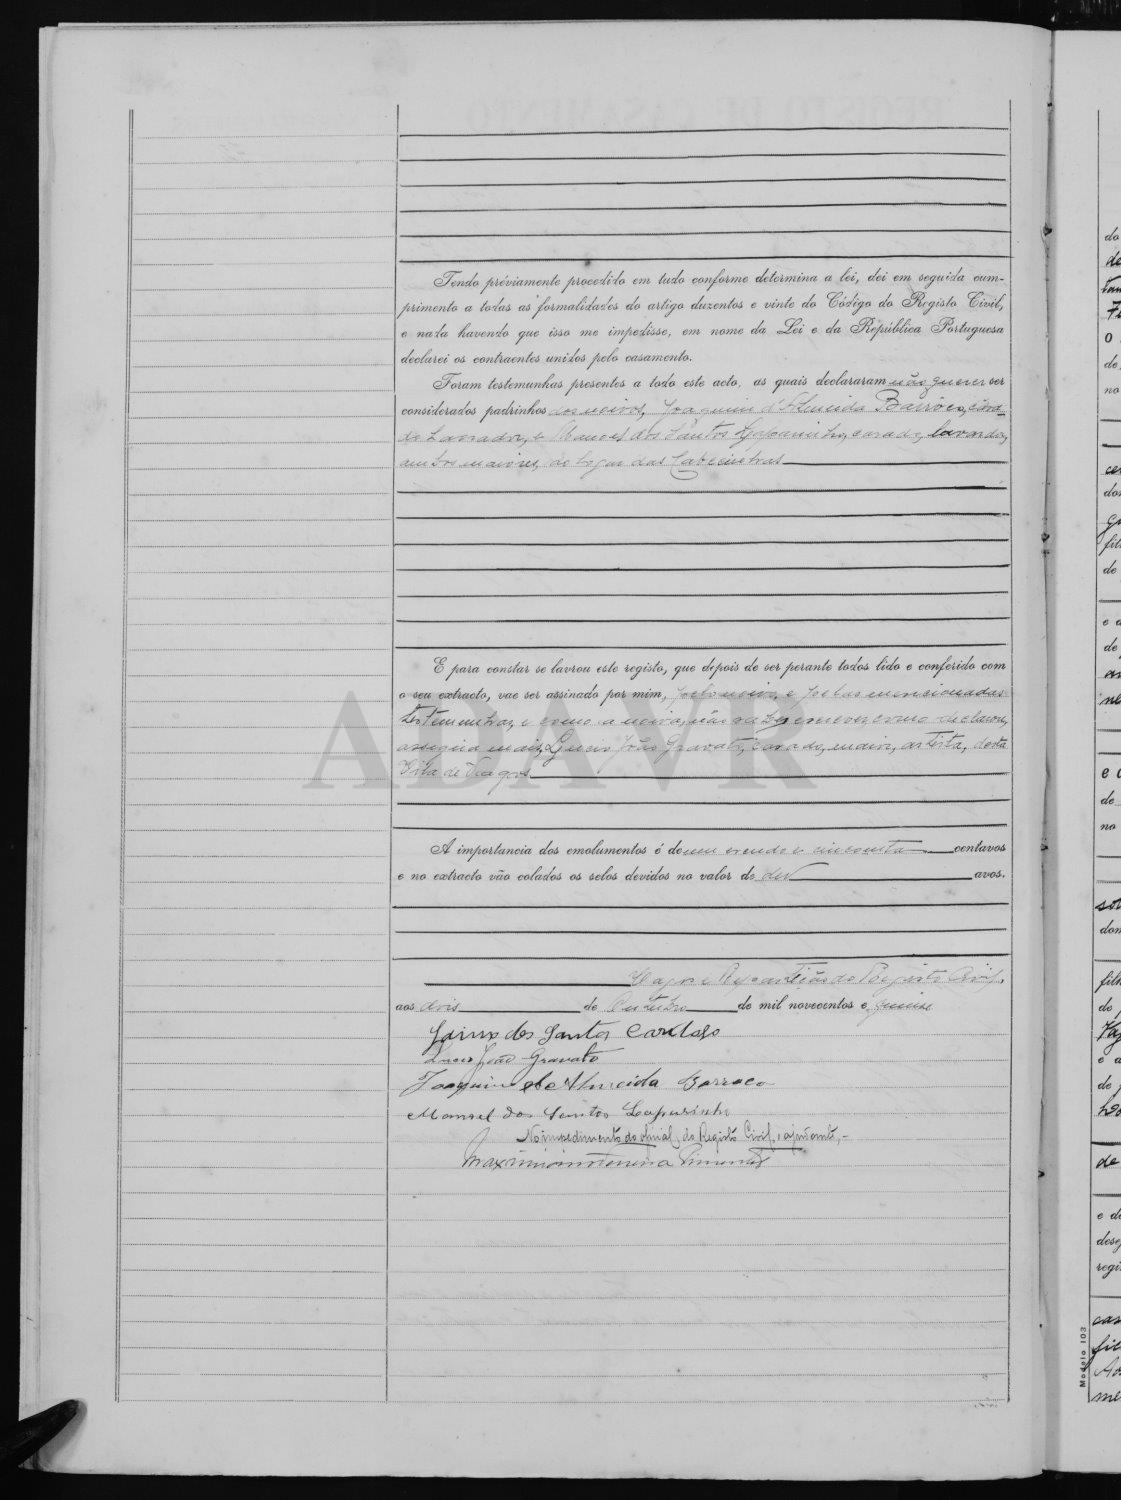 Tendo préviamente procedido em tudo conforme determina a lei, dei em seguida cum-
primento a todas as formalidades do artigo duzentos e vinte do Código do Registo Civil,
e nada havendo que isso me impedisse, em nome da Lei e da República Portuguesa
declarei os contraentes unidos pelo casamento.
Foram testemunhas presentes a todo este acto, as quais declararam não querer ser
considerados padrinhos dos noivos, Joaquim d'Almeida Barroco, casa-
do Lavrador, e Manoel dos Santos casado, lavrador,
ambos maiores, do logar das Cabecinhas
E para constar se lavrou este registo, que depois de ser perante todos lido e conferido com
o seu extracto, vae ser assinado por mim, pelo noivo, e pelas mencionadas
testemunhas, e como a noiva, não saiba escrever, como declarou,
assigna mais, Lucio João Gravato, casado, maior, artista, desta
Vila de Vagos
A importancia dos emolumentos é de um escudo e cincoenta centavos
e no extracto vão colados os selos devidos no valor de dez avos.
Vagos e Repartição do Registo Civil,
aos dois de Outubro de mil novecentos e quinze
Jaime dos Santos Cardoso
Lucio João Gravato
Joaquim de Almeida Barroco
Manuel dos Santos
No impedimento do oficial do Registo Civil, o ajudante,
ADAVR
do
de
no
Modelo 103